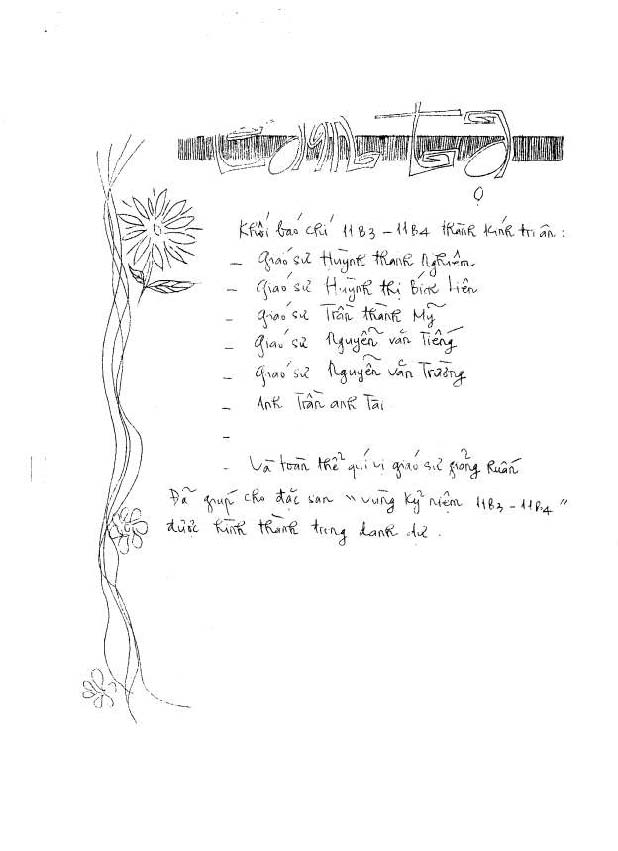 Cảm tạ
Khối báo chí 11B3 - 11B4 thành kính tri ân :
- Giáo sư Huỳnh thanh Nghiêm
- Giáo sư Huỳnh thị Bích Liên
- Giáo sư Trần thành Mỹ
- Giáo sư Nguyễn văn Tiếng
- Giáo sư Nguyễn văn Trường
- Anh Trần anh Tài
-
- Và toàn thể quí vị giáo sư giảng huấn
Đã giúp cho đặc san "vùng kỷ niệm 11B3 - 11B4"
được hình thành trong danh dự .